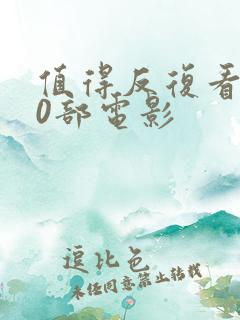 值得反復看
0部電影
逗比色
未经同意禁止转载